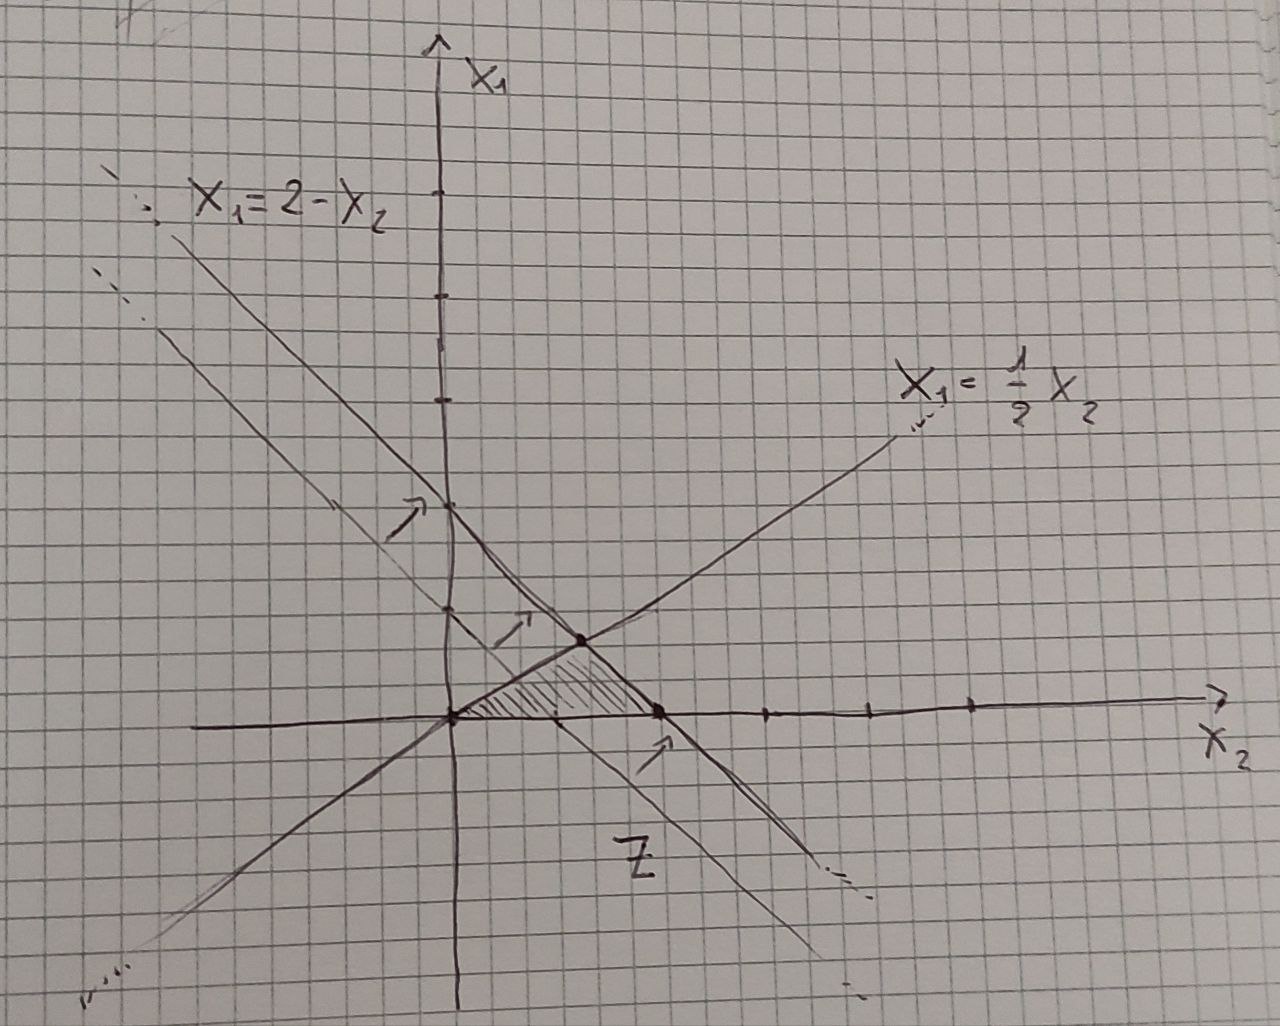 X₁
X₁ = 2 - X₂
X₁ = 1/2 X₂
X₂
Z